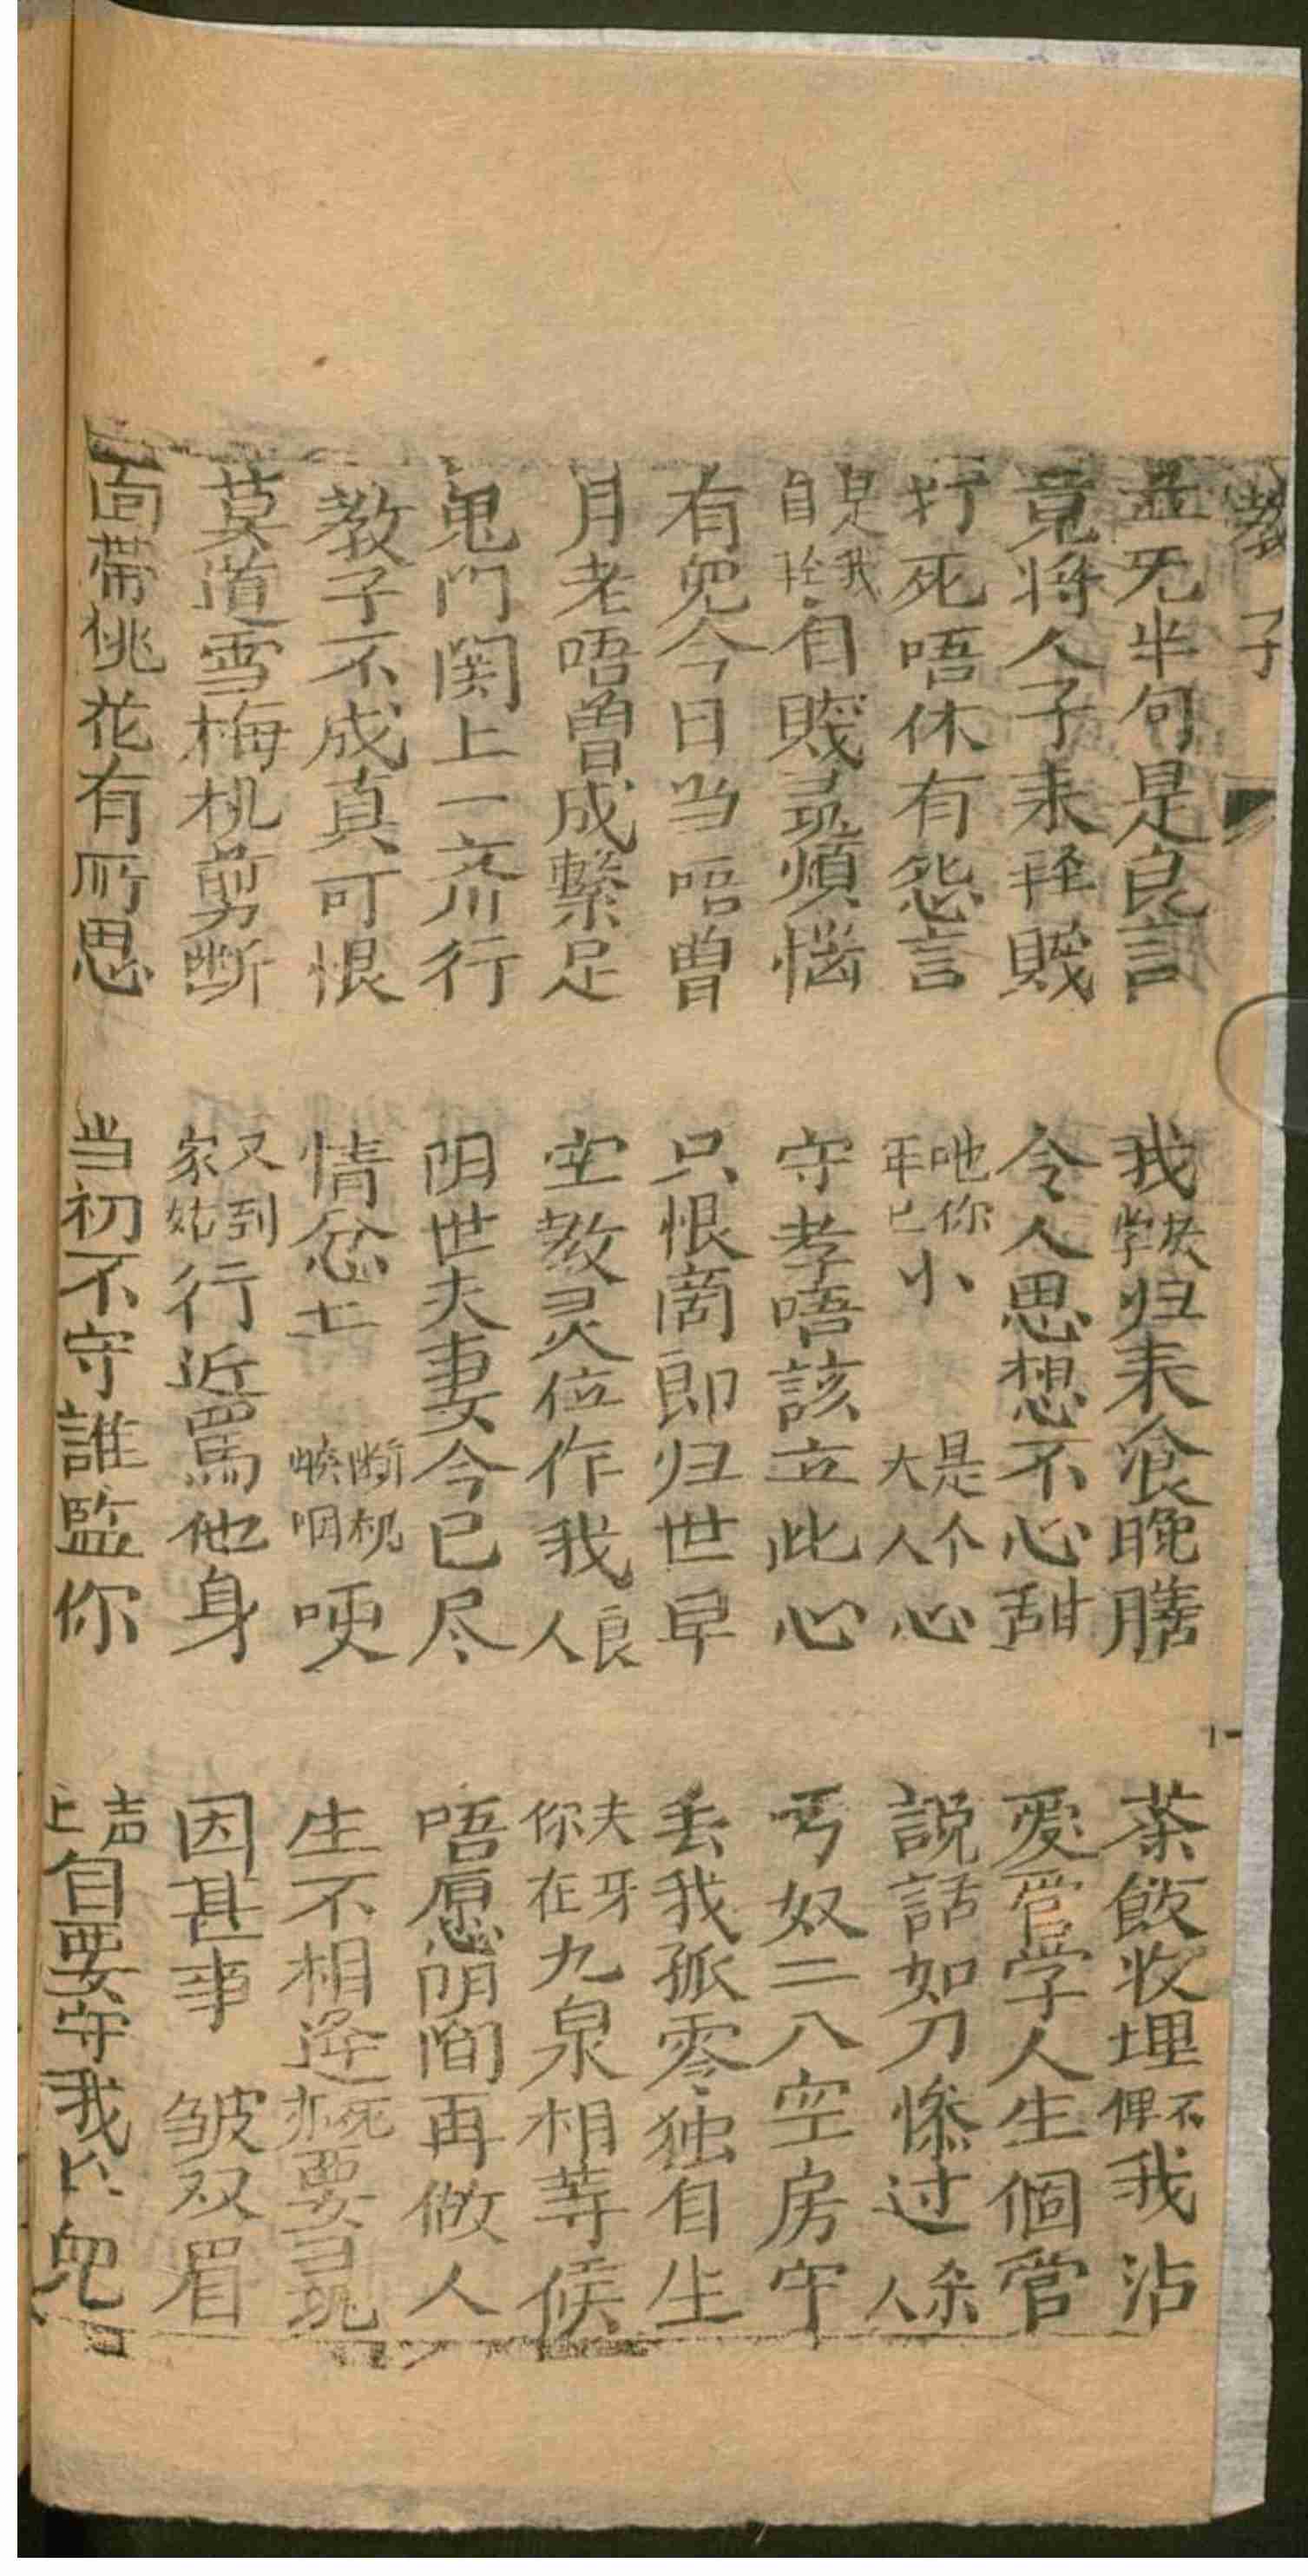 教子
並旡半句是良言　我馱学归耒飡晚膳　茶飯收埋不俾我沾
竟将人子耒軽賤　令人思想不心甜　爱管学人生個管
打死唔休有怨言　吔你年已小　是个大人心　説話如刀惨过杀人
自是我軽自賤尋煩惱　守孝唔該立此心　丐奴二八空房守
有兜今日当唔曾　只恨啇郎归世早　丢我孤零独自生
月老唔曾成繫足　空教灵位作我良人　夫呀你在九泉相等候
鬼门関上一齐行　阴世夫妻今已尽　唔愿阴间再做人
教子不成真可恨　情忿七　断机喉咽哽　生不相逢死亦要尋
莫道雪梅机剪断　又到家姑行近駡他身　因甚事　皱双眉
面帶桃花有所思　当初不守誰監你　声上自要守我兜